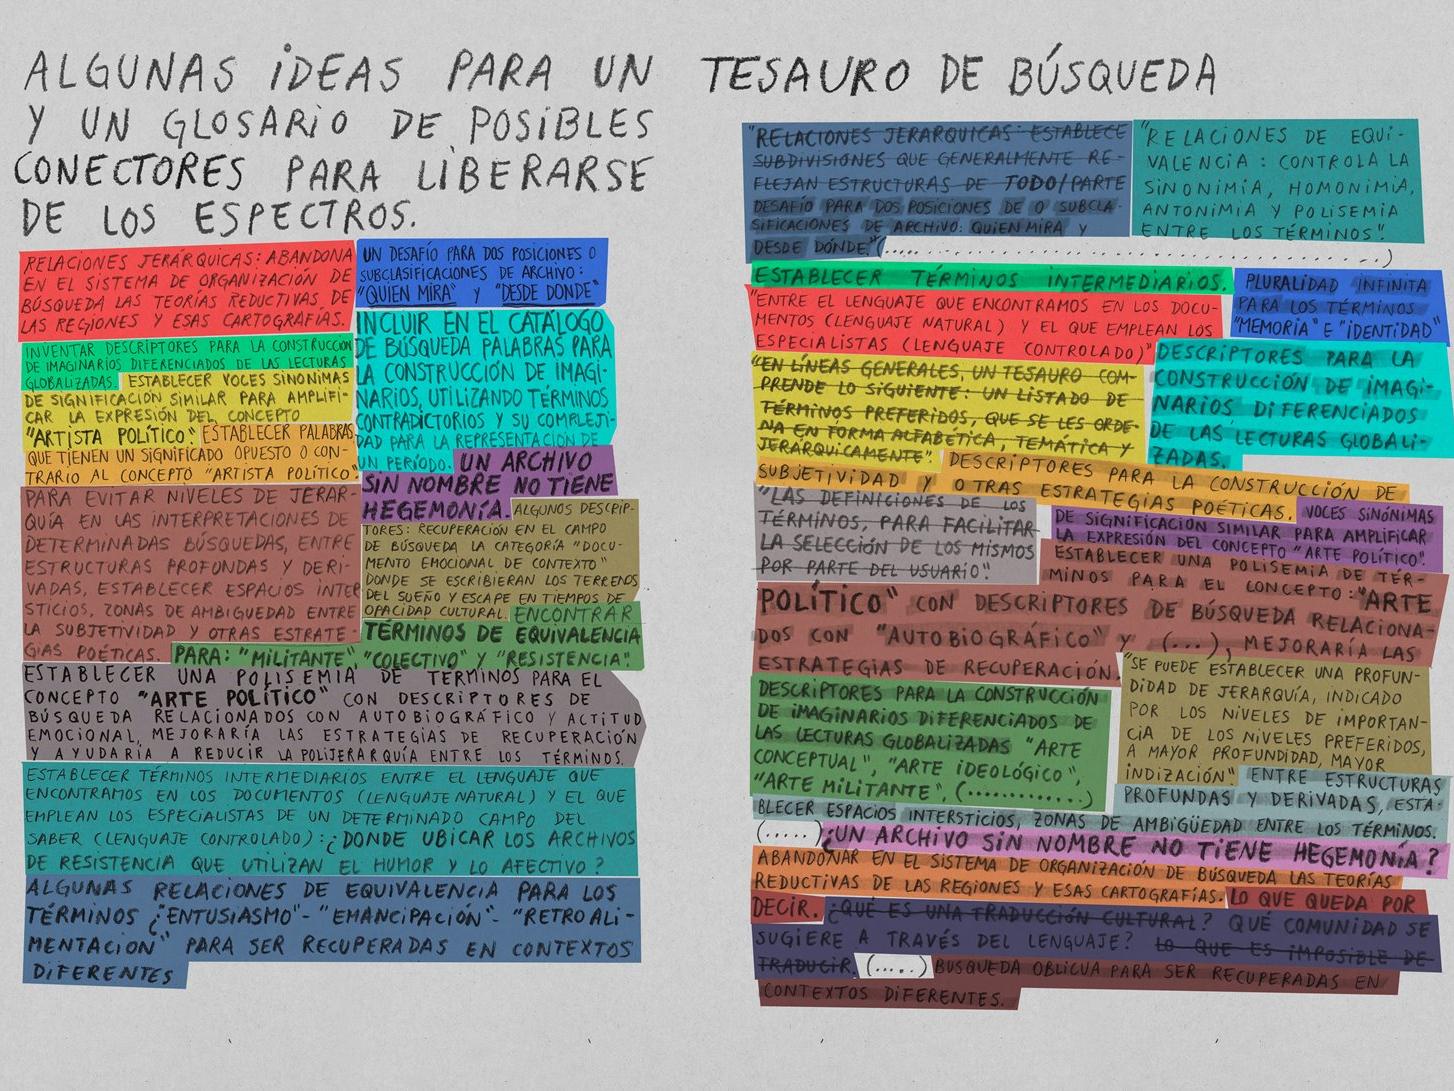 ALGUNAS IDEAS PARA UN TESAURO DE BÚSQUEDA
Y UN GLOSARIO DE POSIBLES
CONECTORES PARA LIBERARSE
DE LOS ESPECTROS.
RELACIONES JERÁRQUICAS: ABANDONA
EN EL SISTEMA DE ORGANIZACIÓN DE
BÚSQUEDA LAS TEORÍAS REDUCTIVAS DE
LAS REGIONES Y ESAS CARTOGRAFÍAS.
UN DESAFÍO PARA DOS POSICIONES O
SUBCLASIFICACIONES DE ARCHIVO:
"QUIEN MIRA" Y "DESDE DONDE"
INVENTAR DESCRIPTORES PARA LA CONSTRUCCIÓN
DE IMAGINARIOS DIFERENCIADOS DE LAS LECTURAS
GLOBALIZADAS. ESTABLECER VOCES SINÓNIMAS
DE SIGNIFICACIÓN SIMILAR PARA AMPLIFI-
CAR LA EXPRESIÓN DEL CONCEPTO
"ARTISTA POLÍTICO". ESTABLECER PALABRAS
QUE TIENEN UN SIGNIFICADO OPUESTO O CON-
TRARIO AL CONCEPTO "ARTISTA POLÍTICO".
INCLUIR EN EL CATÁLOGO
DE BÚSQUEDA PALABRAS PARA
LA CONSTRUCCIÓN DE IMAGI-
NARIOS, UTILIZANDO TÉRMINOS
CONTRADICTORIOS Y SU COMPLEJI-
DAD PARA LA REPRESENTACIÓN DE
UN PERÍODO. UN ARCHIVO
SIN NOMBRE NO TIENE
HEGEMONÍA. ALGUNOS DESCRIP-
TORES: RECUPERACIÓN EN EL CAMPO
DE BÚSQUEDA LA CATEGORÍA "DOCU-
MENTO EMOCIONAL DE CONTEXTO"
DONDE SE ESCRIBIERAN LOS TERRENOS
DEL SUEÑO Y ESCAPE EN TIEMPOS DE
OPACIDAD CULTURAL. ENCONTRAR
TÉRMINOS DE EQUIVALENCIA
PARA EVITAR NIVELES DE JERAR-
QUÍA EN LAS INTERPRETACIONES DE
DETERMINADAS BÚSQUEDAS, ENTRE
ESTRUCTURAS PROFUNDAS Y DERI-
VADAS, ESTABLECER ESPACIOS INTER
STICIOS, ZONAS DE AMBIGUEDAD ENTRE
LA SUBJETIVIDAD Y OTRAS ESTRATE-
GIAS POÉTICAS. PARA: "MILITANTE" "COLECTIVO" Y "RESISTENCIA".
ESTABLECER UNA POLISEMIA DE TÉRMINOS PARA EL
CONCEPTO "ARTE POLÍTICO" CON DESCRIPTORES DE
BÚSQUEDA RELACIONADOS CON AUTOBIOGRÁFICO Y ACTITUD
EMOCIONAL, MEJORARÍA LAS ESTRATEGIAS DE RECUPERACIÓN
Y AYUDARÍA A REDUCIR LA POLIJERARQUÍA ENTRE LOS TÉRMINOS.
ESTABLECER TÉRMINOS INTERMEDIARIOS ENTRE EL LENGUAJE QUE
ENCONTRAMOS EN LOS DOCUMENTOS (LENGUAJE NATURAL) Y EL QUE
EMPLEAN LOS ESPECIALISTAS DE UN DETERMINADO CAMPO DEL
SABER (LENGUAJE CONTROLADO): ¿DONDE UBICAR LOS ARCHIVOS
DE RESISTENCIA QUE UTILIZAN EL HUMOR Y LO AFECTIVO?
ALGUNAS RELACIONES DE EQUIVALENCIA PARA LOS
TÉRMINOS ¿"ENTUSIASMO"- "EMANCIPACIÓN"- "RETROALI-
MENTACIÓN" PARA SER RECUPERADAS EN CONTEXTOS
DIFERENTES
"RELACIONES JERARQUICAS: ESTABLECE
SUBDIVISIONES QUE GENERALMENTE RE-
FLEJAN ESTRUCTURAS DE TODO/PARTE
DESAFÍO PARA DOS POSICIONES DE O SUBCLA-
SIFICACIONES DE ARCHIVO: QUIEN MIRA Y
DESDE DÓNDE." (.......................................)
"RELACIONES DE EQUI-
VALENCIA: CONTROLA LA
SINONIMIA, HOMONIMIA,
ANTONIMIA Y POLISEMIA
ENTRE LOS TÉRMINOS".
ESTABLECER TÉRMINOS INTERMEDIARIOS.
"ENTRE EL LENGUAJE QUE ENCONTRAMOS EN LOS DOCU-
MENTOS (LENGUAJE NATURAL) Y EL QUE EMPLEAN LOS
ESPECIALISTAS (LENGUAJE CONTROLADO)"
PLURALIDAD INFINITA
PARA LOS TÉRMINOS
"MEMORIA" E "IDENTIDAD"
"EN LÍNEAS GENERALES, UN TESAURO COM-
PRENDE LO SIGUIENTE: UN LISTADO DE
TÉRMINOS PREFERIDOS, QUE SE LES ORDE-
NA EN FORMA ALFABÉTICA, TEMÁTICA Y
JERÁRQUICAMENTE".
DESCRIPTORES PARA LA
CONSTRUCCIÓN DE IMAGI-
NARIOS DIFERENCIADOS
DE LAS LECTURAS GLOBALI-
ZADAS.
DESCRIPTORES PARA LA CONSTRUCCIÓN DE
SUBJETIVIDAD Y OTRAS ESTRATEGIAS POÉTICAS.
"LAS DEFINICIONES DE LOS
TÉRMINOS, PARA FACILITAR
LA SELECCIÓN DE LOS MISMOS
POR PARTE DEL USUARIO".
VOCES SINÓNIMAS
DE SIGNIFICACIÓN SIMILAR PARA AMPLIFICAR
LA EXPRESIÓN DEL CONCEPTO "ARTE POLÍTICO".
ESTABLECER UNA POLISEMIA DE TÉR-
MINOS PARA EL CONCEPTO: "ARTE
POLÍTICO" CON DESCRIPTORES DE BÚSQUEDA RELACIONA-
DOS CON "AUTOBIOGRÁFICO" Y (...), MEJORARÍA LAS
ESTRATEGIAS DE RECUPERACIÓN.
DESCRIPTORES PARA LA CONSTRUCCIÓN
DE IMAGINARIOS DIFERENCIADOS DE
LAS LECTURAS GLOBALIZADAS "ARTE
CONCEPTUAL", "ARTE IDEOLÓGICO",
"ARTE MILITANTE", (.............)
"SE PUEDE ESTABLECER UNA PROFUN-
DIDAD DE JERARQUÍA, INDICADO
POR LOS NIVELES DE IMPORTAN-
CIA DE LOS NIVELES PREFERIDOS,
A MAYOR PROFUNDIDAD, MAYOR
INDIZACIÓN" ENTRE ESTRUCTURAS
PROFUNDAS Y DERIVADAS, ESTA-
BLECER ESPACIOS INTERSTICIOS, ZONAS DE AMBIGÜEDAD ENTRE LOS TÉRMINOS.
(.....) ¿UN ARCHIVO SIN NOMBRE NO TIENE HEGEMONÍA?
ABANDONAR EN EL SISTEMA DE ORGANIZACIÓN DE BÚSQUEDA LAS TEORÍAS
REDUCTIVAS DE LAS REGIONES Y ESAS CARTOGRAFÍAS. LO QUE QUEDA POR
DECIR. ¿QUÉ ES UNA TRADUCCIÓN CULTURAL? QUÉ COMUNIDAD SE
SUGIERE A TRAVÉS DEL LENGUAJE? LO QUE ES IMPOSIBLE DE
TRADUCIR. (.....) BUSQUEDA OBLICUA PARA SER RECUPERADAS EN
CONTEXTOS DIFERENTES.